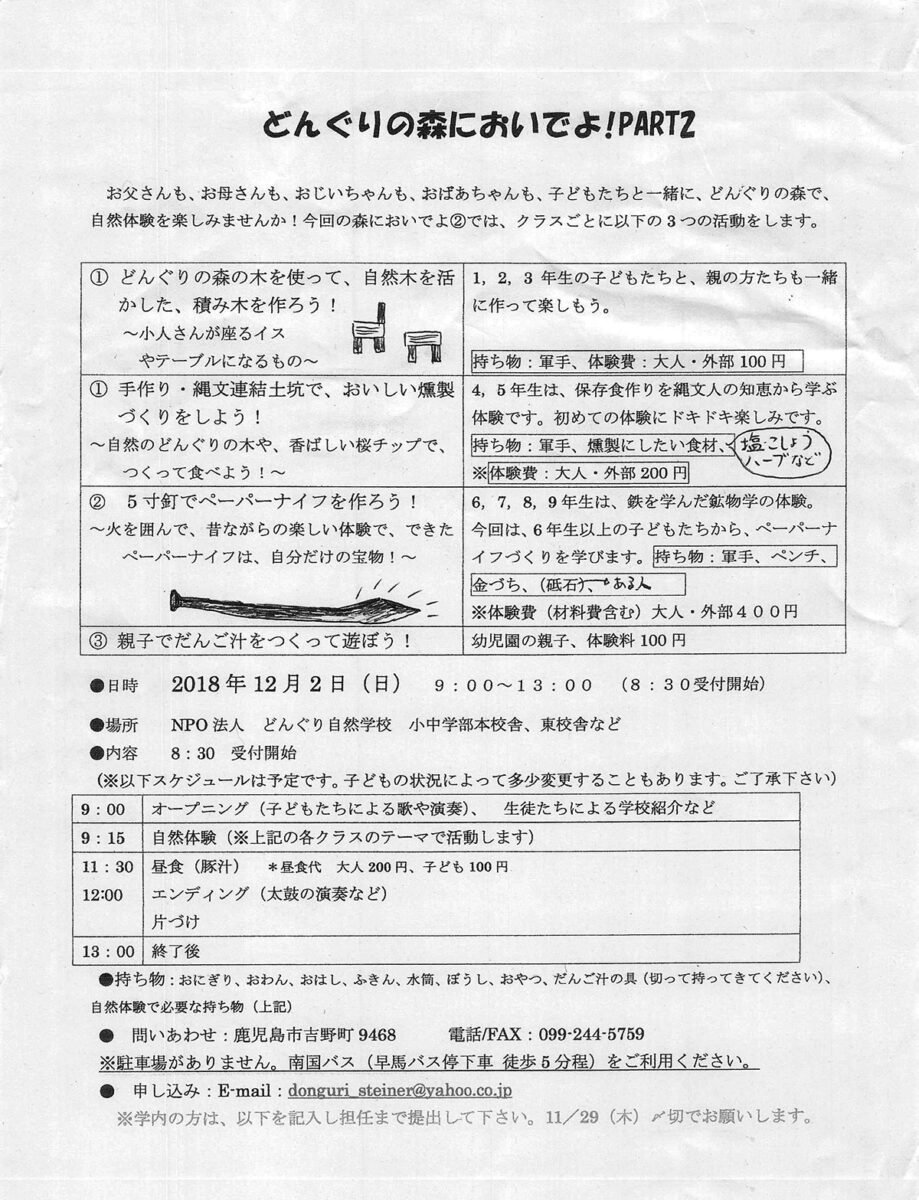 どんぐりの森においでよ!PART2
お父さんも、お母さんも、おじいちゃんも、おばあちゃんも、子どもたちと一緒に、どんぐりの森で、
自然体験を楽しみませんか！今回の森においでよ②では、クラスごとに以下の３つの活動をします。
① どんぐりの森の木を使って、自然木を活
かした、積み木を作ろう！
～小人さんが座るイス
やテーブルになるもの～
1，2，3 年生の子どもたちと、親の方たちも一緒
に作って楽しもう。
持ち物：軍手、体験費：大人・外部 100 円
① 手作り・縄文連結土坑で、おいしい燻製
づくりをしよう！
～自然のどんぐりの木や、香ばしい桜チップで、
つくって食べよう！～
4，5 年生は、保存食作りを縄文人の知恵から学ぶ
体験です。初めての体験にドキドキ楽しみです。
持ち物：軍手、燻製にしたい食材、
塩・こしょう
ハーブなど
※体験費：大人・外部 200 円
② 5 寸釘でペーパーナイフを作ろう！
～火を囲んで、昔ながらの楽しい体験で、できた
ペーパーナイフは、自分だけの宝物！～
6，7，8，9 年生は、鉄を学んだ鉱物学の体験。
今回は、6 年生以上の子どもたちから、ペーパーナ
イフづくりを学びます。持ち物：軍手、ペンチ、
金づち、（砥石）ある人
※体験費（材料費含む）大人・外部４００円
③ 親子でだんご汁をつくって遊ぼう！
幼児園の親子、体験料 100 円
●日時 2018 年 12 月 2 日（日） ９：００～１３：００ （８：３０受付開始）
●場所 NPO 法人 どんぐり自然学校 小中学部本校舎、東校舎など
●内容 8：30 受付開始
(※以下スケジュールは予定です。子どもの状況によって多少変更することもあります。ご了承下さい)
9：00 オープニング（子どもたちによる歌や演奏）、 生徒たちによる学校紹介など
9：15 自然体験（※上記の各クラスのテーマで活動します）
11：30 昼食（豚汁） ＊昼食代 大人 200 円、子ども 100 円
12:00 エンディング（太鼓の演奏など）
片づけ
13：00 終了後
●持ち物：おにぎり、おわん、おはし、ふきん、水筒、ぼうし、おやつ、だんご汁の具（切って持ってきてください）、
自然体験で必要な持ち物（上記）
● 問いあわせ：鹿児島市吉野町 9468 電話/FAX：099-244-5759
※駐車場がありません。南国バス（早馬バス停下車 徒歩 5 分程）をご利用ください。
● 申し込み：E-mail：donguri_steiner@yahoo.co.jp
※学内の方は、以下を記入し担任まで提出して下さい。11／29（木）〆切でお願いします。